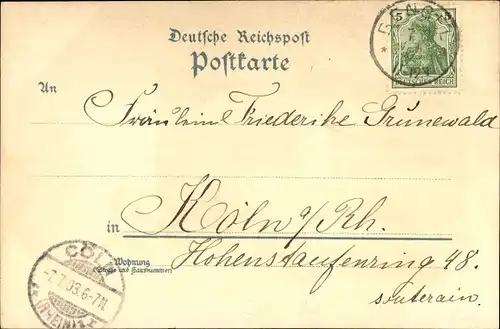 Deutsche Reichspost
Postkarte
An
Fräulein Friederike Grunewald
in Köln a/Rh.
Wohnung
(Straße und Hausnummer)
Hohenstaufenring 48.
souterain.
5
DEUTSCHES REICH
CÖLN
7.7.03.6-7N.
(RHEIN) 1